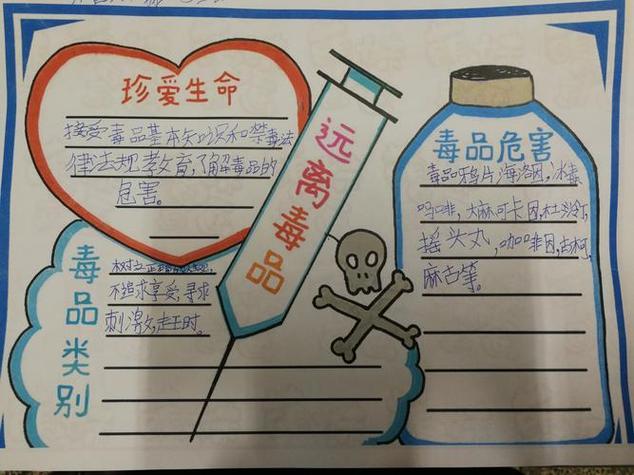 珍爱生命
接受毒品基本知识和禁毒法
律法规教育,了解毒品的
危害。
远离毒品
毒品危害
毒品鸦片海洛因,冰毒
吗啡,大麻可卡因,杜冷丁,
摇头丸,咖啡因,古柯,
麻古等。
毒品类别
树立正
不追求享受,寻求
刺激,赶时。